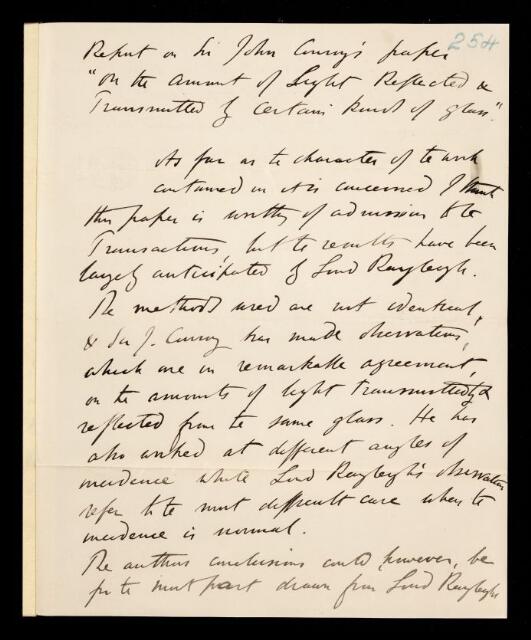 254
Report on Sir John Conroy's paper
"On the amount of Light Reflected &
Transmitted by certain kinds of glass."
As far as the character of the work
contained in it is concerned I think
this paper is worthy of admission to the
Transactions, but the results have been
largely anticipated by Lord Rayleigh.
The methods used are not identical,
& Sir J. Conroy has made observations,
which are in remarkable agreement,
on the amounts of light transmitted by &
reflected from the same glass. He has
also worked at different angles of
incidence while Lord Rayleigh's observations
refer to the most difficult case when the
incidence is normal.
The authors conclusions could, however, be
for the most part drawn from Lord Rayleighs